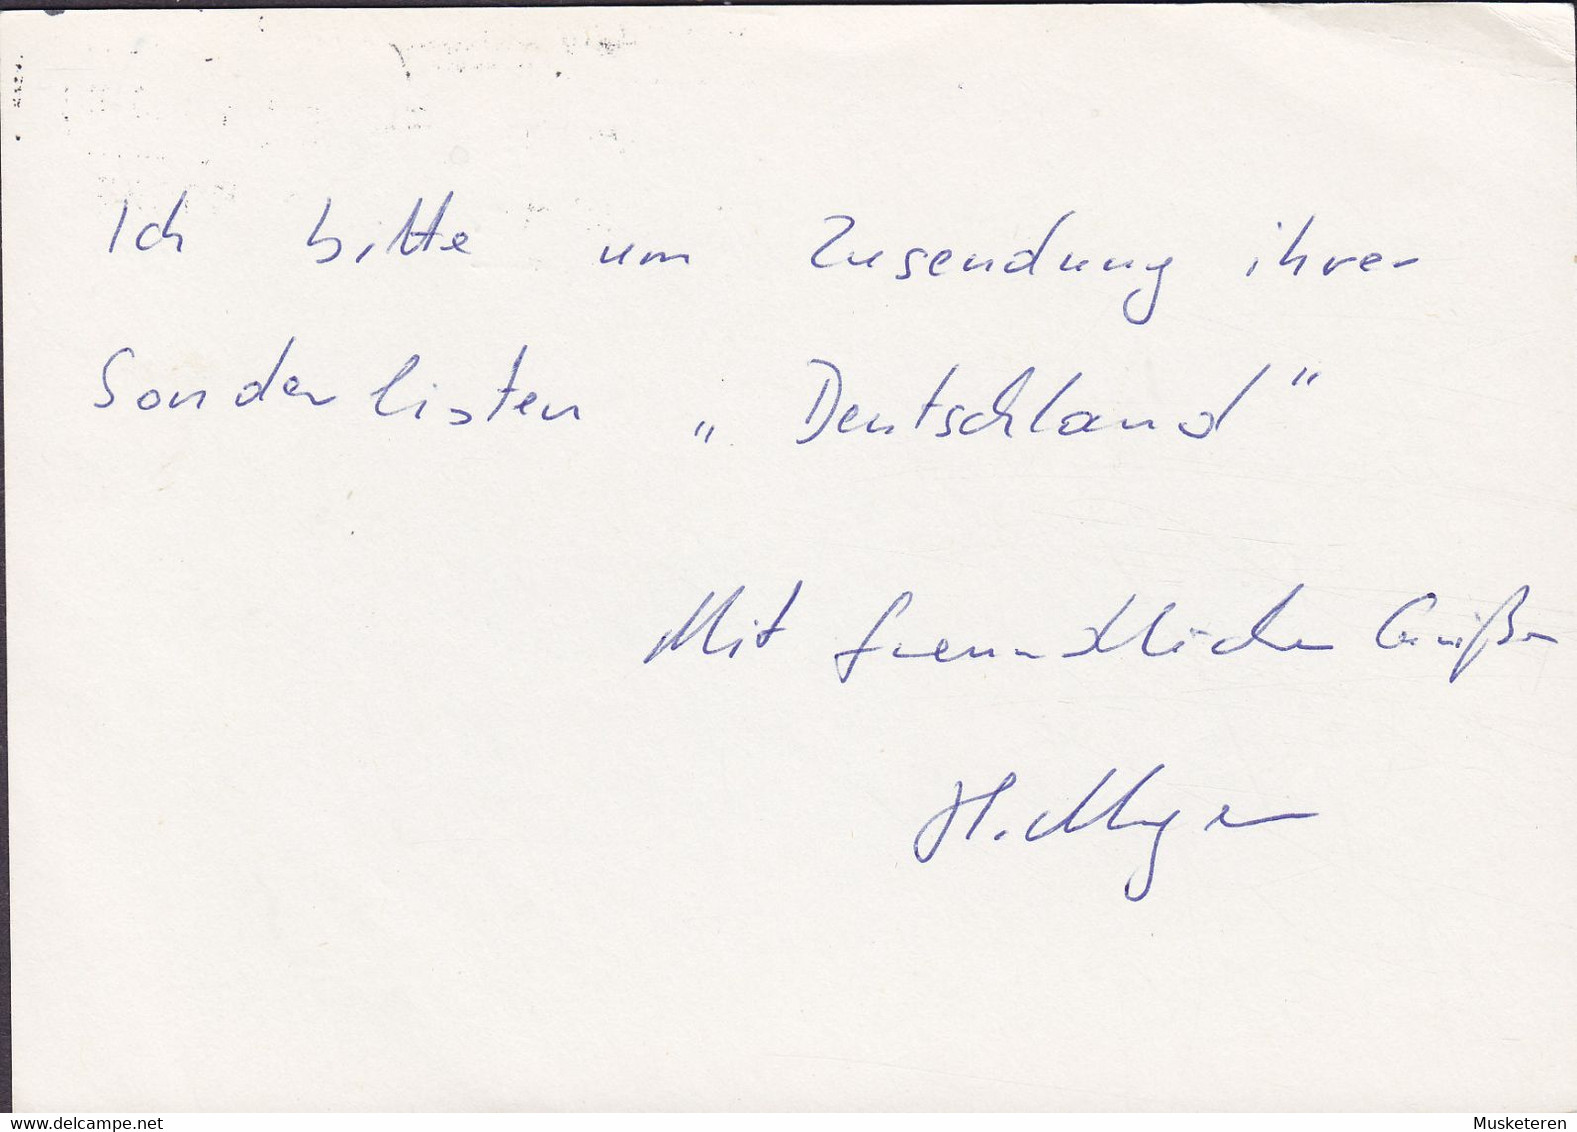 Ich bitte um Zusendung ihrer
Sonderlisten „Deutschland“
Mit freundlichen Grüßen
H.
www.delcampe.net
Musketeren